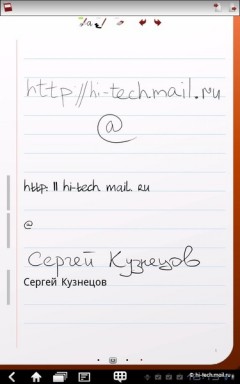 http://hi-techmail.ru
@
http: || hi-tech mail. ru
@
Сергей Кузнецов
Сергей Кузнецов
© hi-tech.mail.ru